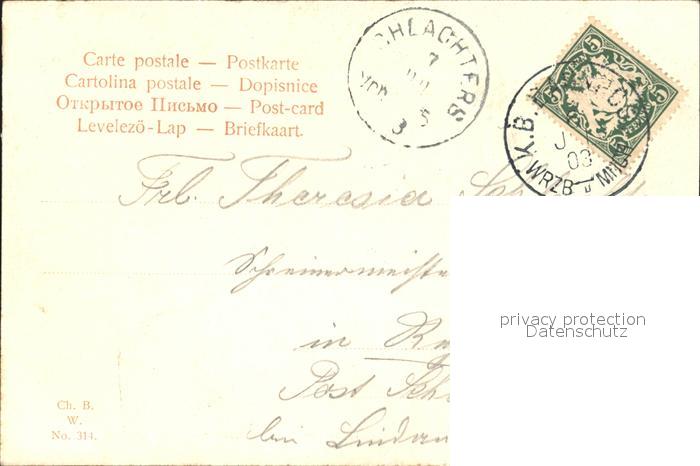 Carte postale — Postkarte
Cartolina postale — Dopisnice
Открытое Письмо — Post-card
Levelező-Lap — Briefkaart.
SCHLACHTERS
7
3
5
K.B.
03
WRZB u MHCH
Frl. Theresia
Schreinermeiste
in
Post Sch
bei Lindau
privacy protection
Datenschutz
Ch. B.
W.
No. 314.